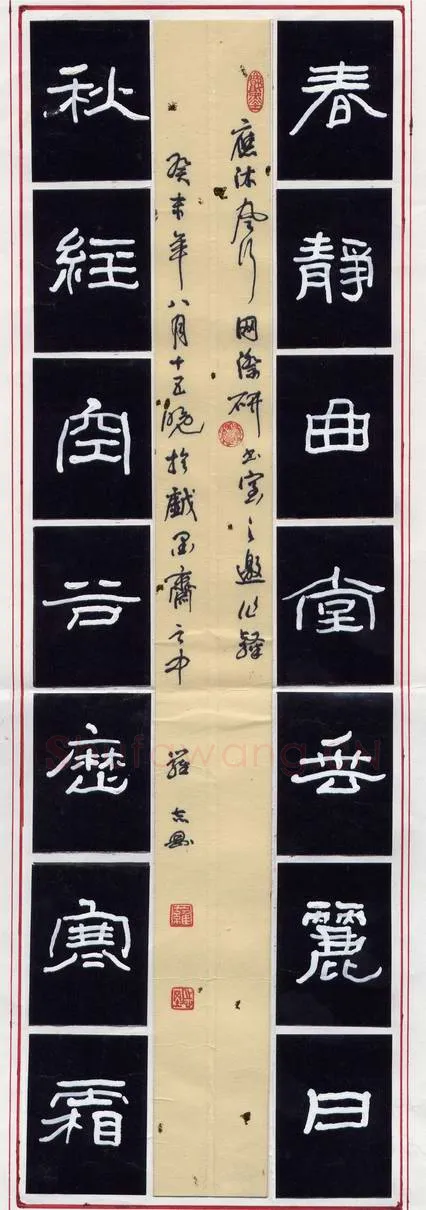 春靜曲堂垂麗日
應沐風行网際研書室之邀作
癸未年八月十五晚於戲墨齋之中
羅志
秋經空谷歷寒霜
Shufawang.CN